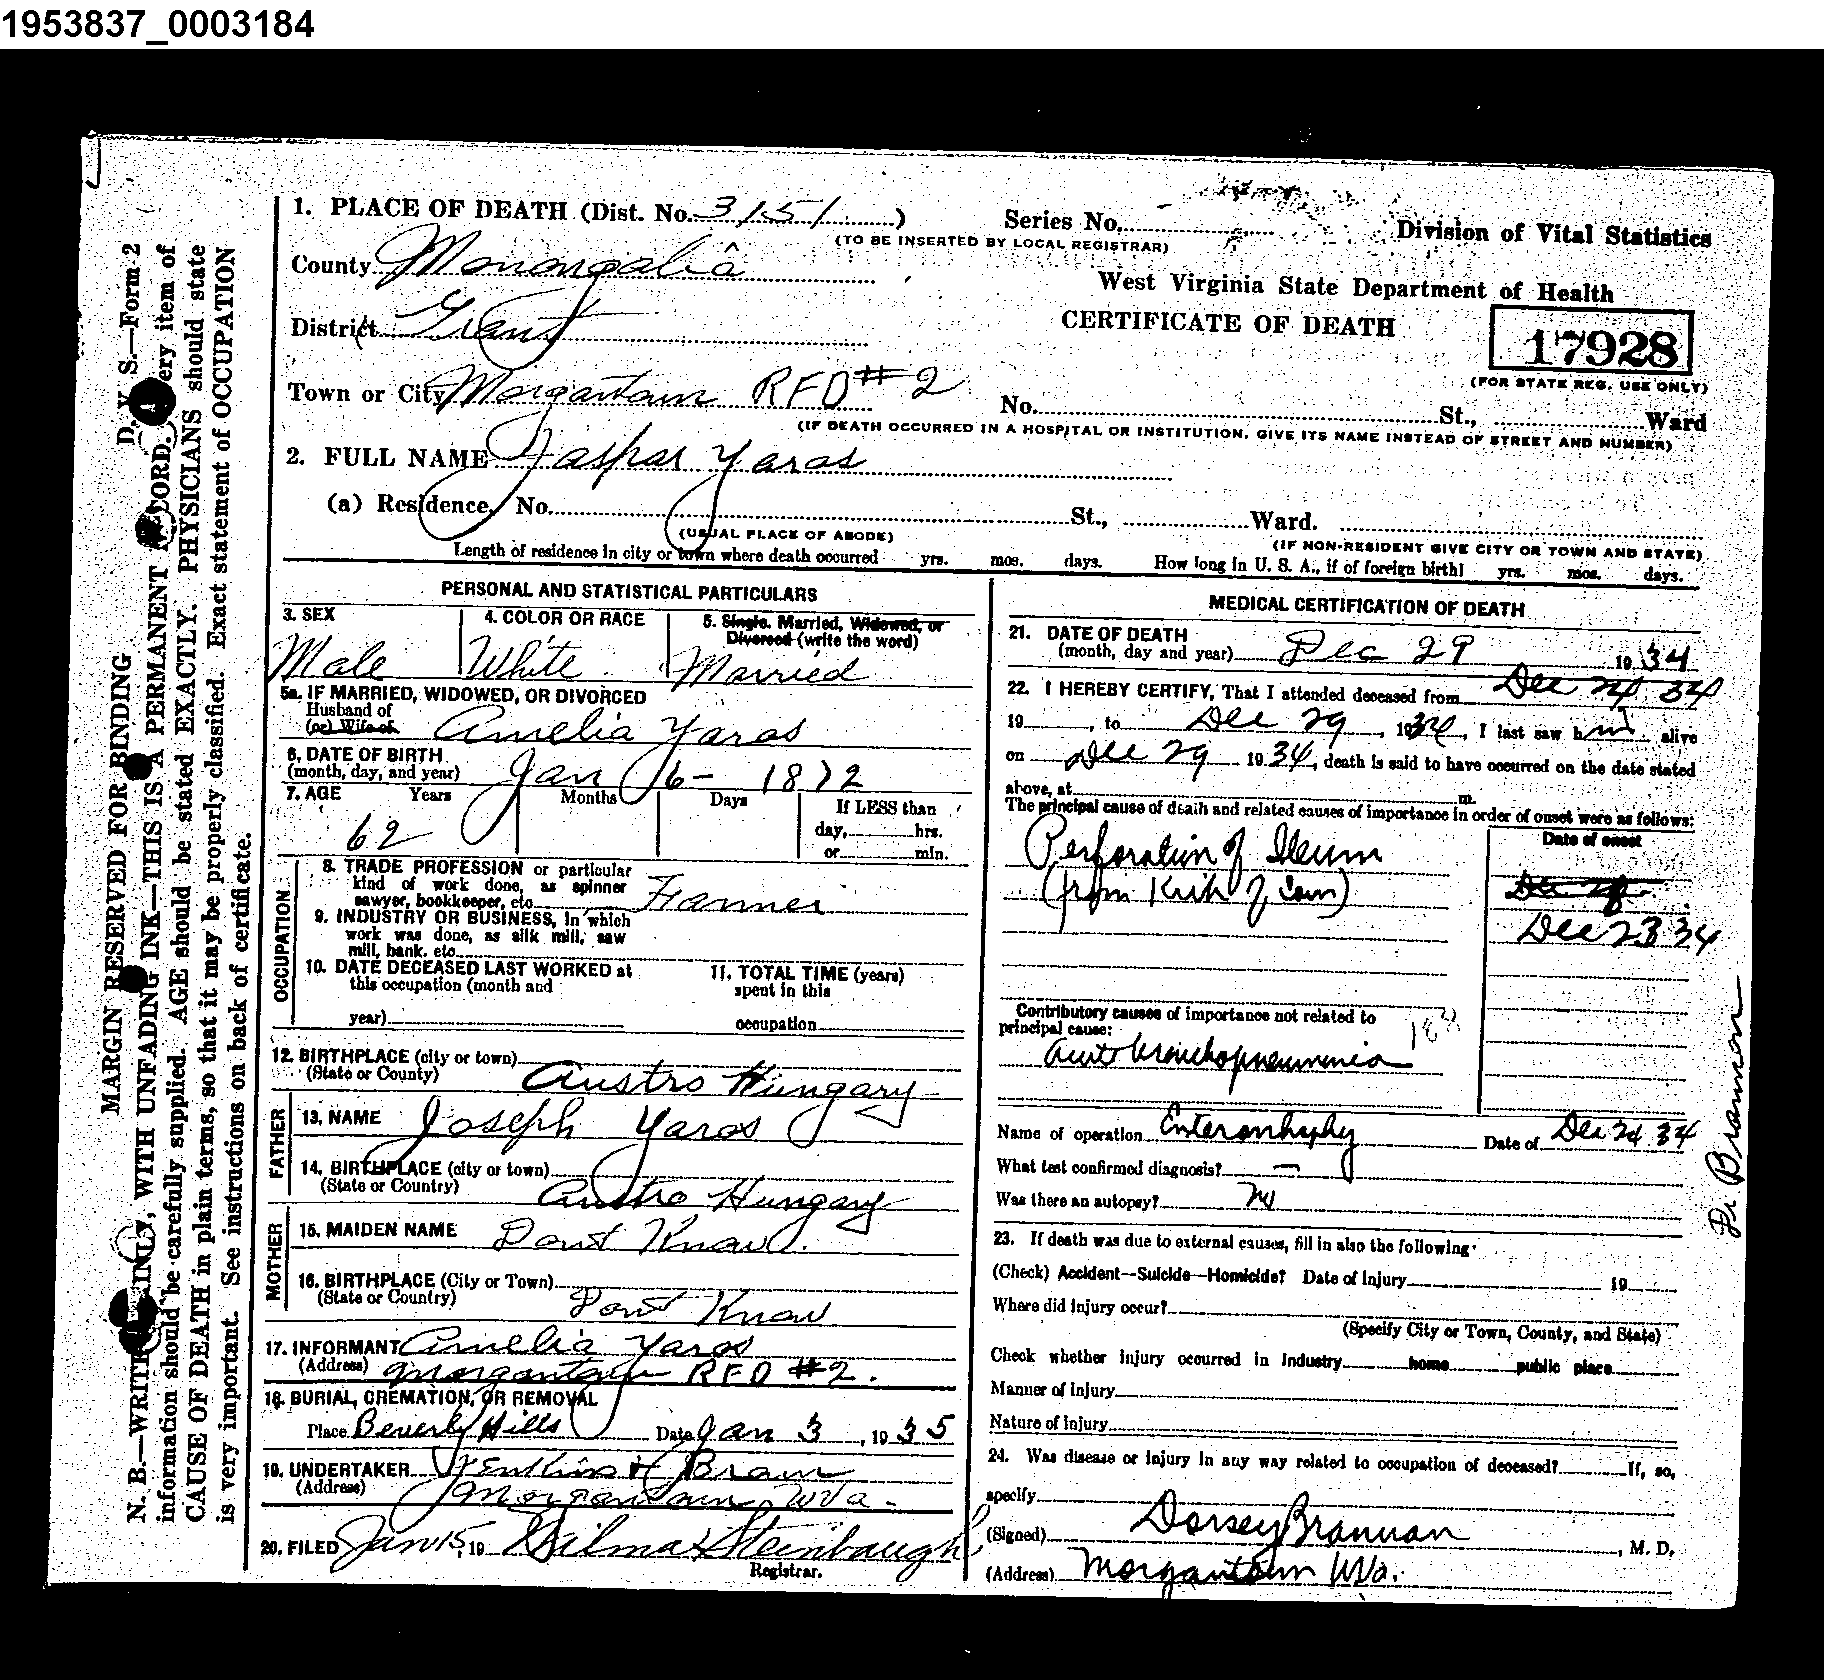 1953837_0003184
1. PLACE OF DEATH (Dist. No. 3151)
Series No.
(TO BE INSERTED BY LOCAL REGISTRAR)
Division of Vital Statistics
County Monongalia
West Virginia State Department of Health
District Grant
CERTIFICATE OF DEATH
17928
(FOR STATE REG. USE ONLY)
Town or City Morgantown RFD #2
No. St., Ward
(IF DEATH OCCURRED IN A HOSPITAL OR INSTITUTION, GIVE ITS NAME INSTEAD OF STREET AND NUMBER)
2. FULL NAME Jaspar Yaros
(a) Residence, No. St., Ward.
(USUAL PLACE OF ABODE)
(IF NON-RESIDENT GIVE CITY OR TOWN AND STATE)
Length of residence in city or town where death occurred yrs. mos. days. How long in U. S. A., if of foreign birth? yrs. mos. days.
PERSONAL AND STATISTICAL PARTICULARS
3. SEX
Male
4. COLOR OR RACE
White
5. Single. Married, Widowed, or
Divorced (write the word)
Married
5a. IF MARRIED, WIDOWED, OR DIVORCED
Husband of
(or) Wife of
Amelia Yaros
6. DATE OF BIRTH
(month, day, and year) Jan 6- 1872
7. AGE Years Months Days
62
If LESS than
day, hrs.
or min.
OCCUPATION
8. TRADE PROFESSION or particular
kind of work done, as spinner
sawyer, bookkeeper, etc. Farmer
9. INDUSTRY OR BUSINESS, in which
work was done, as silk mill, saw
mill, bank, etc.
10. DATE DECEASED LAST WORKED at
this occupation (month and
year)
11. TOTAL TIME (years)
spent in this
occupation
12. BIRTHPLACE (city or town)
(State or County) Austro Hungary
FATHER
13. NAME Joseph Yaros
14. BIRTHPLACE (city or town)
(State or Country) Austro Hungary
MOTHER
15. MAIDEN NAME Dont Know.
16. BIRTHPLACE (City or Town)
(State or Country) Dont Know
17. INFORMANT Amelia Yaros
(Address) Morgantown RFD #2.
18. BURIAL, CREMATION, OR REMOVAL
Place Beverly Hills Date Jan 3, 1935
19. UNDERTAKER Jenkins & Brown
(Address) Morgantown, WVa.
20. FILED Jan 15, 19 Wilma Steinbaugh
Registrar.
MEDICAL CERTIFICATION OF DEATH
21. DATE OF DEATH
(month, day and year) Dec 29 1934
22. I HEREBY CERTIFY, That I attended deceased from Dec 24, 34
19 , to Dec 29, 1934, I last saw him alive
on Dec 29 1934, death is said to have occurred on the date stated
above, at m.
The principal cause of death and related causes of importance in order of onset were as follows:
Date of onset
Perforation of Ileum
(from Kick of Cow)
Dec 23 34
Contributory causes of importance not related to
principal cause:
acute bronchopneumonia
Name of operation Enterorrhaphy Date of Dec 24 34
What test confirmed diagnosis? —
Was there an autopsy? No
23. If death was due to external causes, fill in also the following
(Check) Accident--Suicide--Homicide? Date of Injury 19
Where did injury occur?
(Specify City or Town, County, and State)
Check whether injury occurred in Industry home public place
Manner of Injury
Nature of Injury
24. Was disease or injury in any way related to occupation of deceased? If, so,
specify
(Signed) Dorsey Brannan, M. D.
(Address) Morgantown WVa.
Dr Brannon
D. V. S.—Form 2
MARGIN RESERVED FOR BINDING
N. B.—WRITE PLAINLY, WITH UNFADING INK—THIS IS A PERMANENT RECORD. Every item of
information should be carefully supplied. AGE should be stated EXACTLY. PHYSICIANS should state
CAUSE OF DEATH in plain terms, so that it may be properly classified. Exact statement of OCCUPATION
is very important. See instructions on back of certificate.